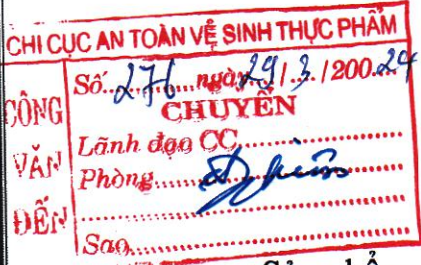 CHI CỤC AN TOÀN VỆ SINH THỰC PHẨM
CÔNG VĂN ĐẾN
Số 276 ngày 29/3/200.24
CHUYỂN
Lãnh đạo CC
Phòng
Sao